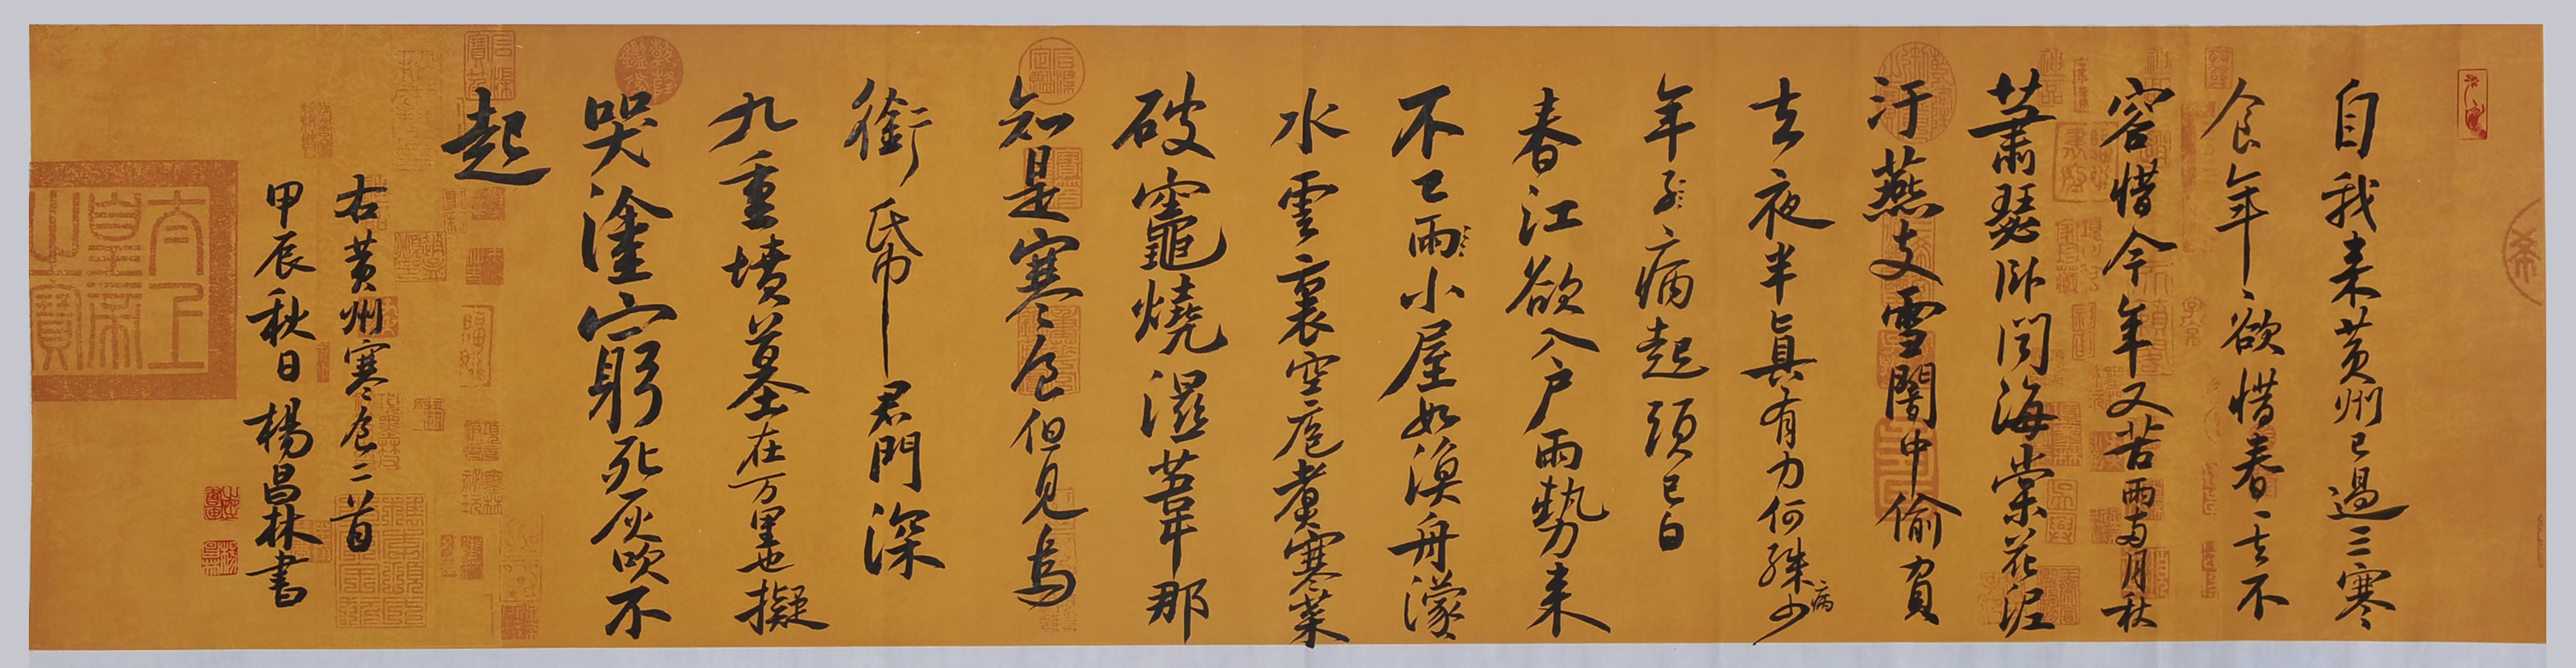 自我来黄州已過三寒
食年年欲惜春春去不
容惜今年又苦雨兩月秋
蕭瑟卧聞海棠花泥
汙燕支雪闇中偷負
去夜半真有力何殊少
病
年子病起頭已白
春江欲入户雨勢来
不已雨小屋如漁舟濛
水雲裏空庖煮寒菜
破竈燒濕葦那
知是寒食但見烏
銜帋君門深
九重墳墓在万里也擬
哭塗窮死灰吹不
起
右黄州寒食二首
甲辰秋日楊昌林書
太上皇帝之寶